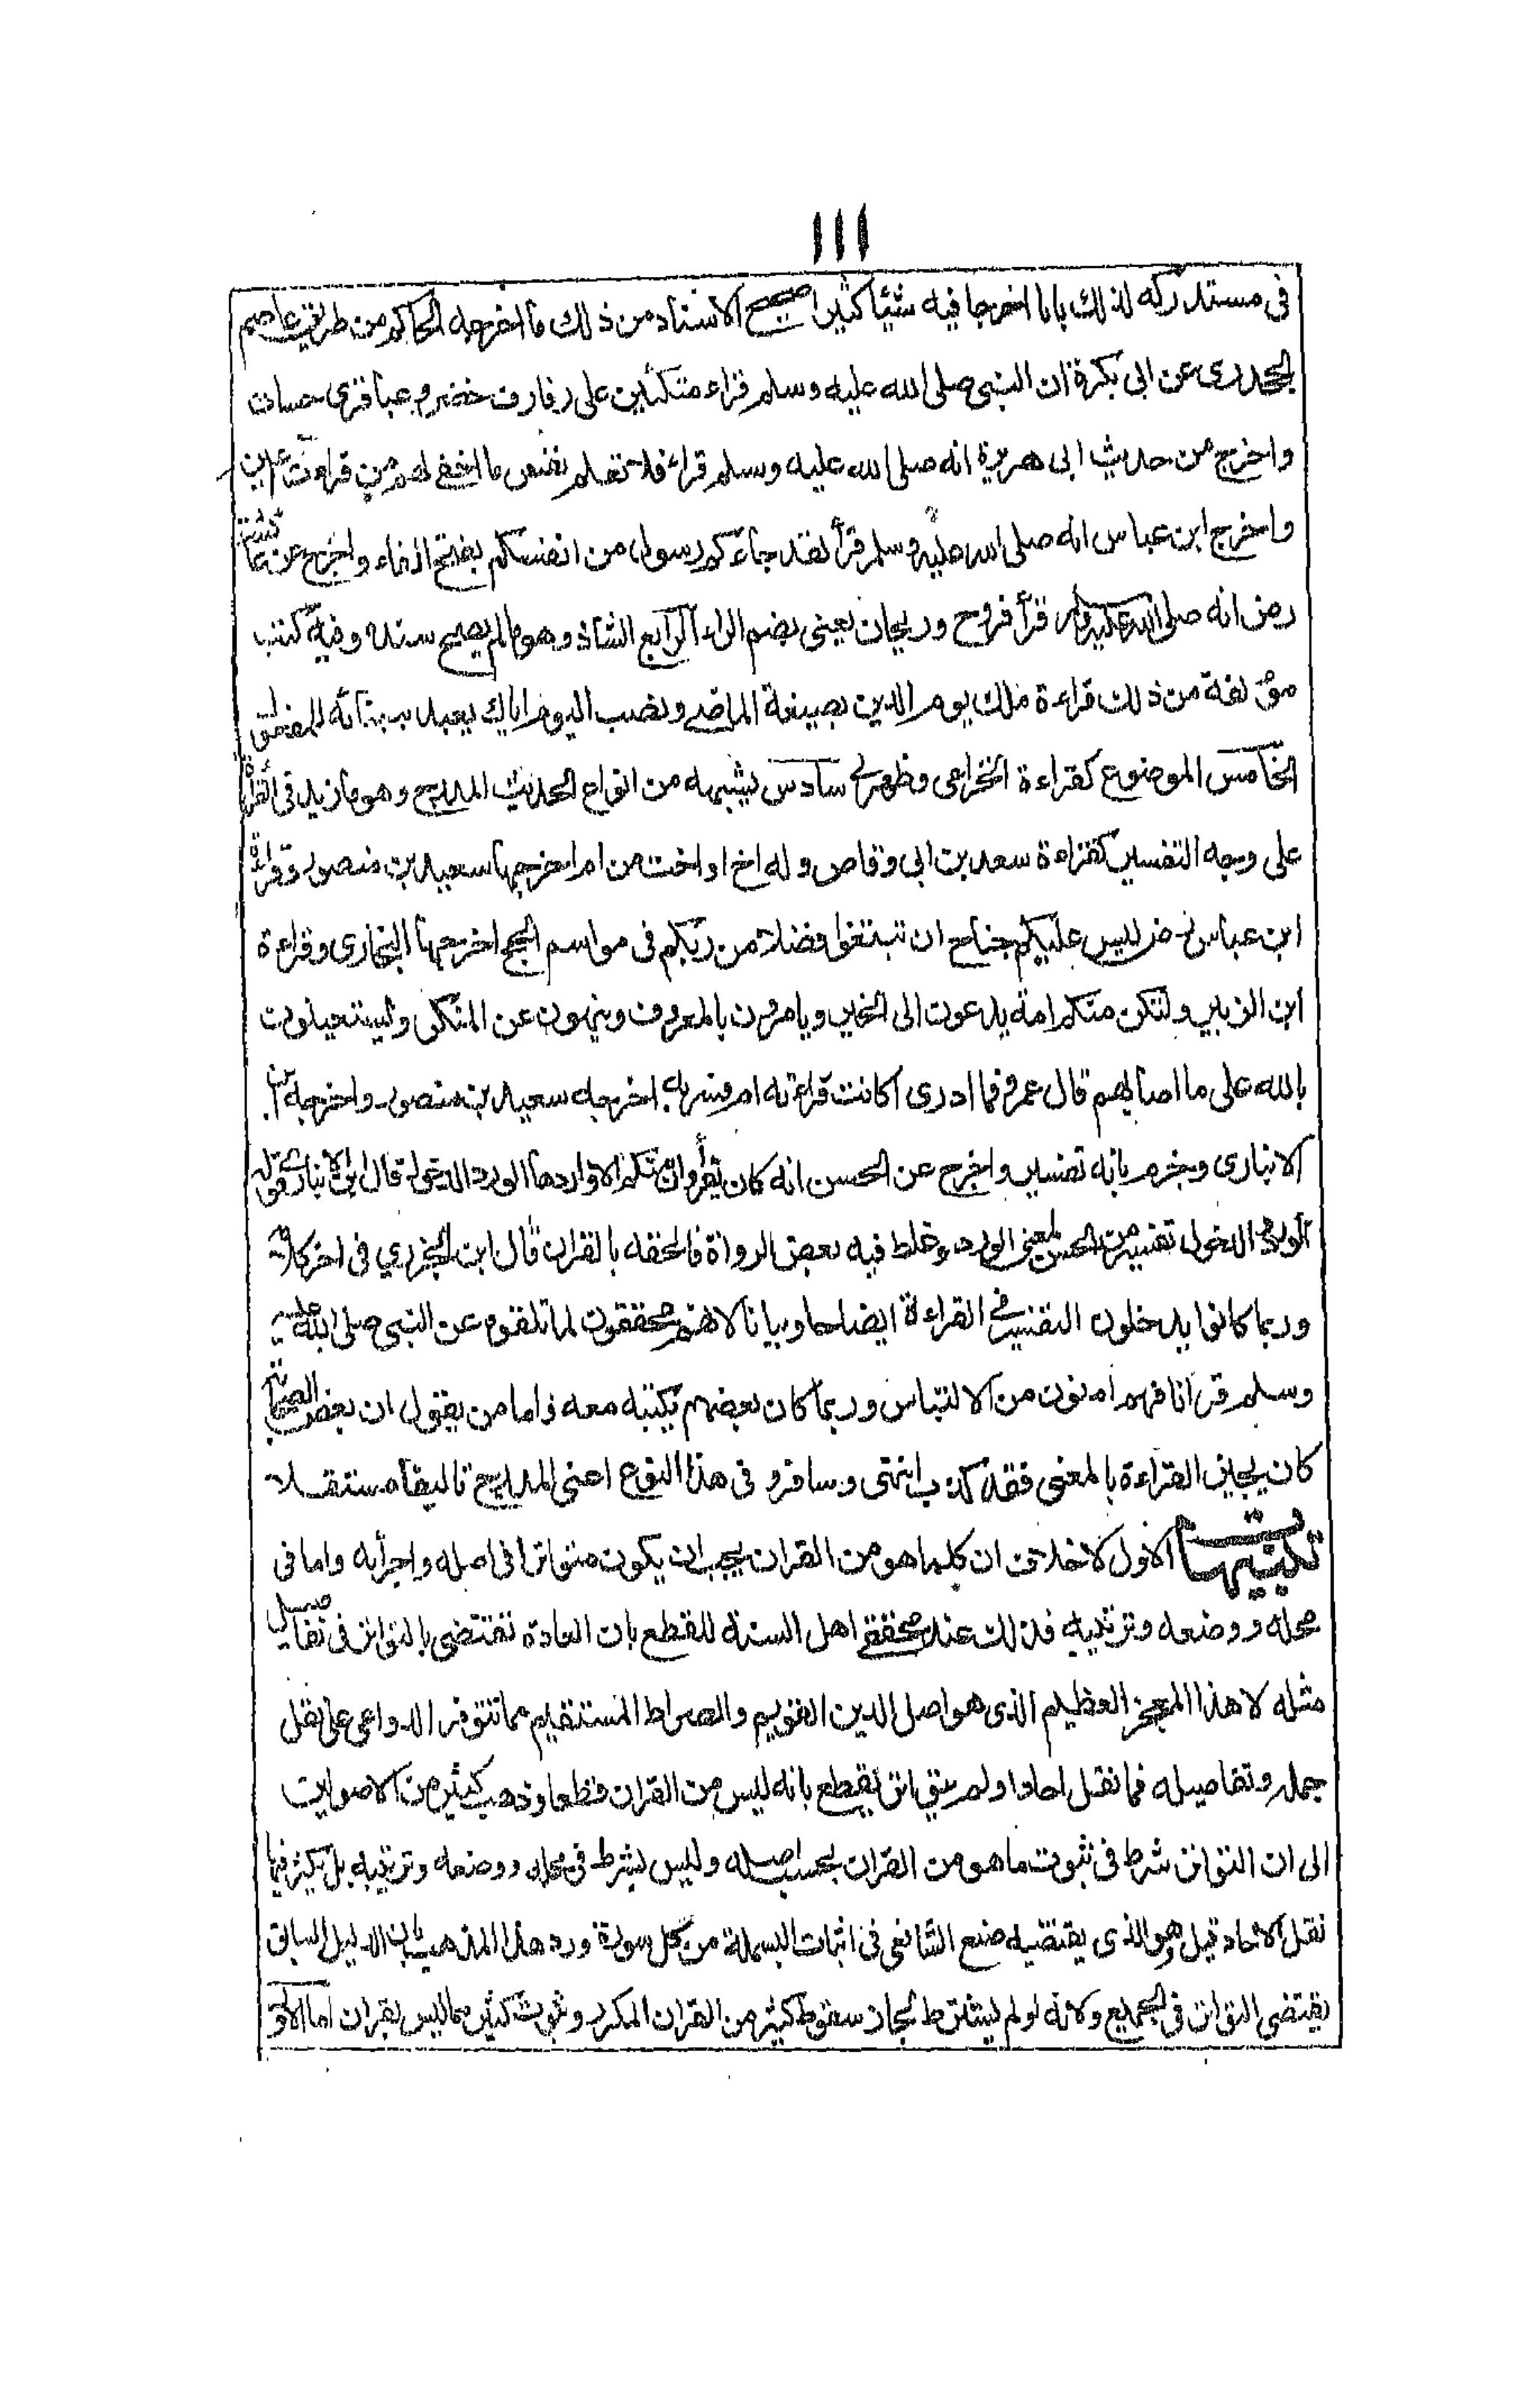 ١١١
فى مستدركه لذلك بابا اخرجا فيه شيئا كثيرا صحيح الاسناد من ذلك ما اخرجه الحاكم من طريق عاصم
الجحدرى عن ابى بكرة ان النبى صلى الله عليه وسلم قراء متكئين على رفارف خضر وعباقرى حسان
واخرج من حديث ابى هريرة انه صلى الله عليه وسلم قراء فلا تعلم نفس ما اخفى لهم من قراءت اعين
واخرج ابن عباس انه صلى الله عليه وسلم قرأ لقد جاءكم رسول من انفسكم بفتح الفاء واخرج عن عائشة
رض انه صلى الله عليه وسلم قرأ فروح وريحان يعنى بضم الراء الرابع الشاذ وهو ما لم يصح سنده وفيه كتب
مؤلفة من ذلك قراءة ملك يوم الدين بصيغة الماضى ونصب اليوم اياك يعبد ببنائه للمفعول
الخامس الموضوع كقراءة الخزاعى وظهر لى سادس يشبهه من انواع الحديث المدرج وهو ما زيد فى القرأة
على وجه التفسير كقراءة سعد بن ابى وقاص وله اخ او اخت من ام اخرجها سعيد بن منصور وقراءة
ابن عباس رض ليس عليكم جناح ان تبتغوا فضلا من ربكم فى مواسم الحج اخرجها البخارى وقراءة
ابن الزبير ولتكن منكم امة يدعون الى الخير ويامرون بالمعروف وينهون عن المنكر ويستعينون
بالله على ما اصابهم قال عمر وفما ادرى اكانت قراءته ام فسر به اخرجه سعيد بن منصور واخرجه ابن
الانبارى وجزم بانه تفسير واخرج عن الحسن انه كان يقرأ وان منكم الا واردها الورود الدخول قال ابن الانبارى قوله
الورود الدخول تفسير من الحسن لمعنى الورود وغلط فيه بعض الرواة فالحقه بالقران قال ابن الجزري فى اخر كلامه
وربما كانوا يدخلون التفسير فى القراءة ايضاحا وبيانا لانهم محققون لما تلقوه عن النبى صلى الله عليه
وسلم قرانا فهم امنون من الالتباس وربما كان بعضهم يكتبه معه واما من يقول ان بعض الصحابة
كان يجيز القراءة بالمعنى فقد كذب انتهى وسافرد فى هذا النوع اعنى المدرج تاليفا مستقلا
تنبيهات الاول لا خلاف ان كلما هو من القران يجب ان يكون متواترا فى اصله واجزأيه واما فى
محله ووضعه وترتيبه فذلك عند محققى اهل السنة للقطع بان العادة تقتضى بالتواتر فى تفاصيل
مثله لا هذا المعجز العظيم الذى هو اصل الدين القويم والصراط المستقيم مما تتوفر الدواعى على نقل
جمله وتفاصيله فما نقل احادا ولم يتواتر يقطع بانه ليس من القران قطعا وذهب كثير من الاصوليين
الى ان التواتر شرط فى ثبوت ما هو من القران بحسب اصله وليس بشرط فى محله ووضعه وترتيبه بل يكثر فيها
نقل الاحاد قيل وهو الذى يقتضيه صنع الشافعى فى اثبات البسملة من كل سورة ورد هذا المذهب بان الدليل السابق
يقتضى التواتر فى الجميع ولانه لو لم يشترط لجاز سقوط كثير من القران المكرر وثبوت كثير مما ليس بقران اما الاول